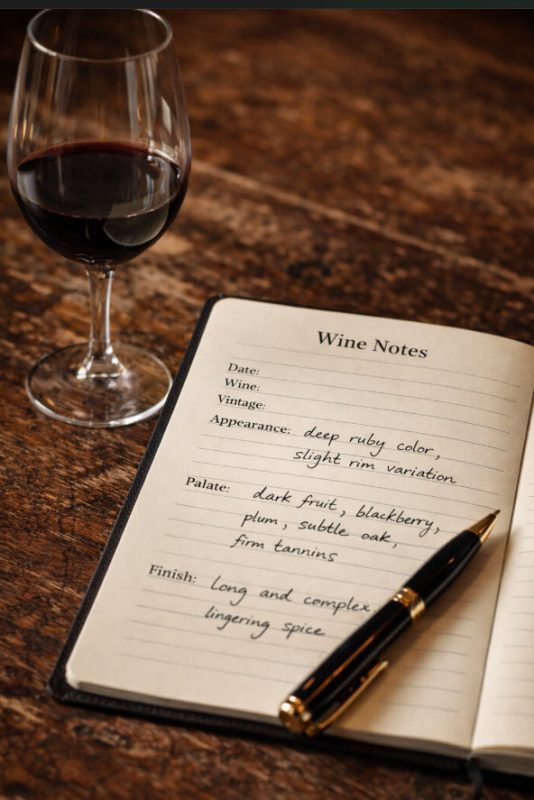 Wine Notes
Date:
Wine:
Vintage:
Appearance: deep ruby color,
slight rim variation
Palate: dark fruit, blackberry,
plum, subtle oak,
firm tannins
Finish: long and complex
lingering spice